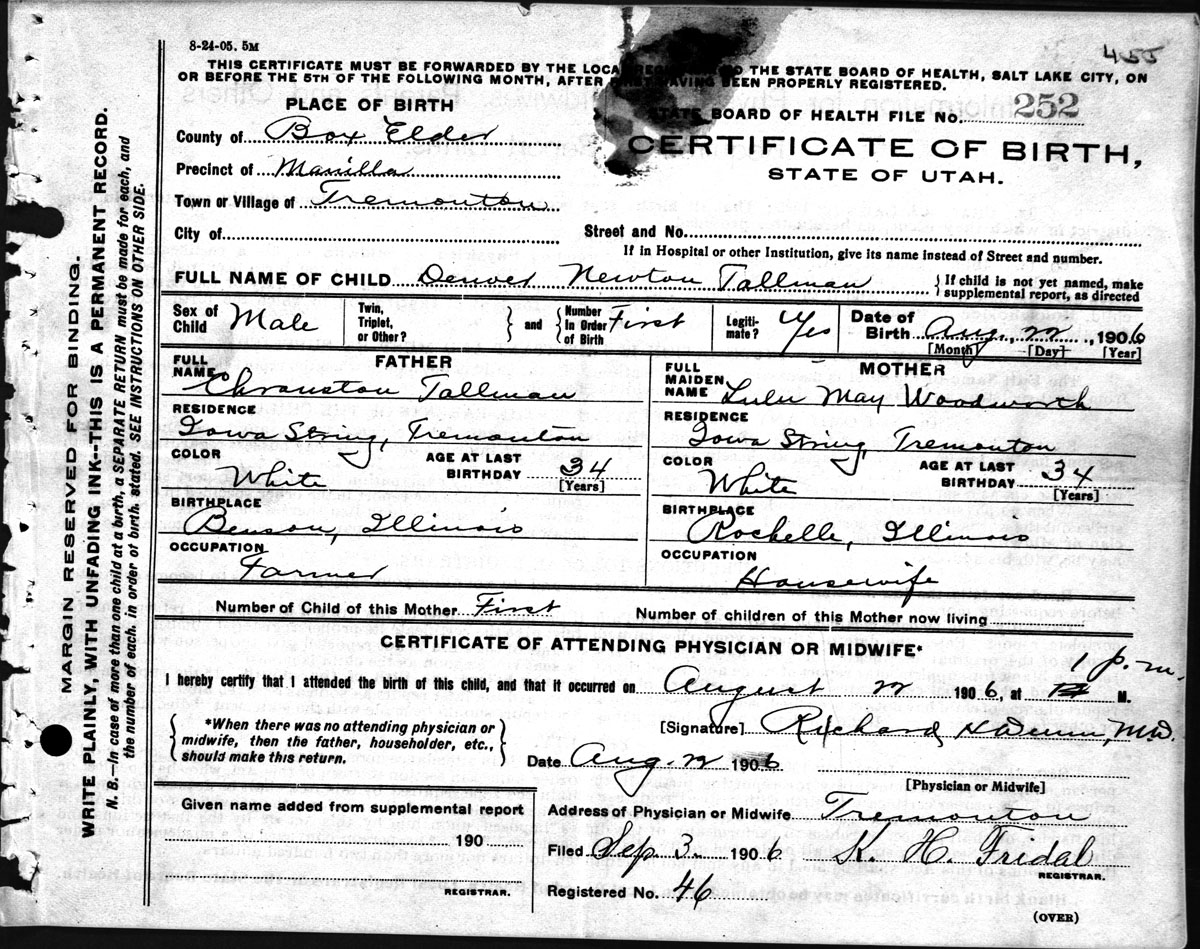 8-24-05. 5M
455
THIS CERTIFICATE MUST BE FORWARDED BY THE LOCAL TO THE STATE BOARD OF HEALTH, SALT LAKE CITY, ON
OR BEFORE THE 5TH OF THE FOLLOWING MONTH, AFTER FIRST HAVING BEEN PROPERLY REGISTERED.
PLACE OF BIRTH
STATE BOARD OF HEALTH FILE No. 252
County of Box Elder
CERTIFICATE OF BIRTH,
Precinct of Manilla
STATE OF UTAH.
Town or Village of Tremonton
City of
Street and No.
If in Hospital or other Institution, give its name instead of Street and number.
FULL NAME OF CHILD Denver Newton Tallman { If child is not yet named, make
supplemental report, as directed
Sex of Child Male
Twin, Triplet, or Other? } and { Number In Order of Birth First
Legiti-mate? Yes
Date of Birth Aug., 22, 1906
[Month] [Day] [Year]
FATHER
FULL NAME Chranston Tallman
RESIDENCE
Iowa String, Tremonton
COLOR White AGE AT LAST BIRTHDAY 34
[Years]
BIRTHPLACE
Benson, Illinois
OCCUPATION
Farmer
MOTHER
FULL MAIDEN NAME Lulu May Woodworth
RESIDENCE
Iowa String, Tremonton
COLOR White AGE AT LAST BIRTHDAY 34
[Years]
BIRTHPLACE
Rochelle, Illinois
OCCUPATION
Housewife
Number of Child of this Mother First Number of children of this Mother now living
CERTIFICATE OF ATTENDING PHYSICIAN OR MIDWIFE*
I hereby certify that I attended the birth of this child, and that it occurred on August 22 1906, at 1 p.m. M.
{ *When there was no attending physician or
midwife, then the father, householder, etc.,
should make this return. }
[Signature] Richard H M.D.
Date Aug. 22 1906
[Physician or Midwife]
Given name added from supplemental report
190
REGISTRAR.
Address of Physician or Midwife Tremonton
Filed Sep 3. 1906 K. H. Fridal
REGISTRAR.
Registered No. 46
(OVER)
MARGIN RESERVED FOR BINDING.
WRITE PLAINLY, WITH UNFADING INK--THIS IS A PERMANENT RECORD.
N. B.- In case of more than one child at a birth, a SEPARATE RETURN must be made for each, and
the number of each, in order of birth, stated. SEE INSTRUCTIONS ON OTHER SIDE.